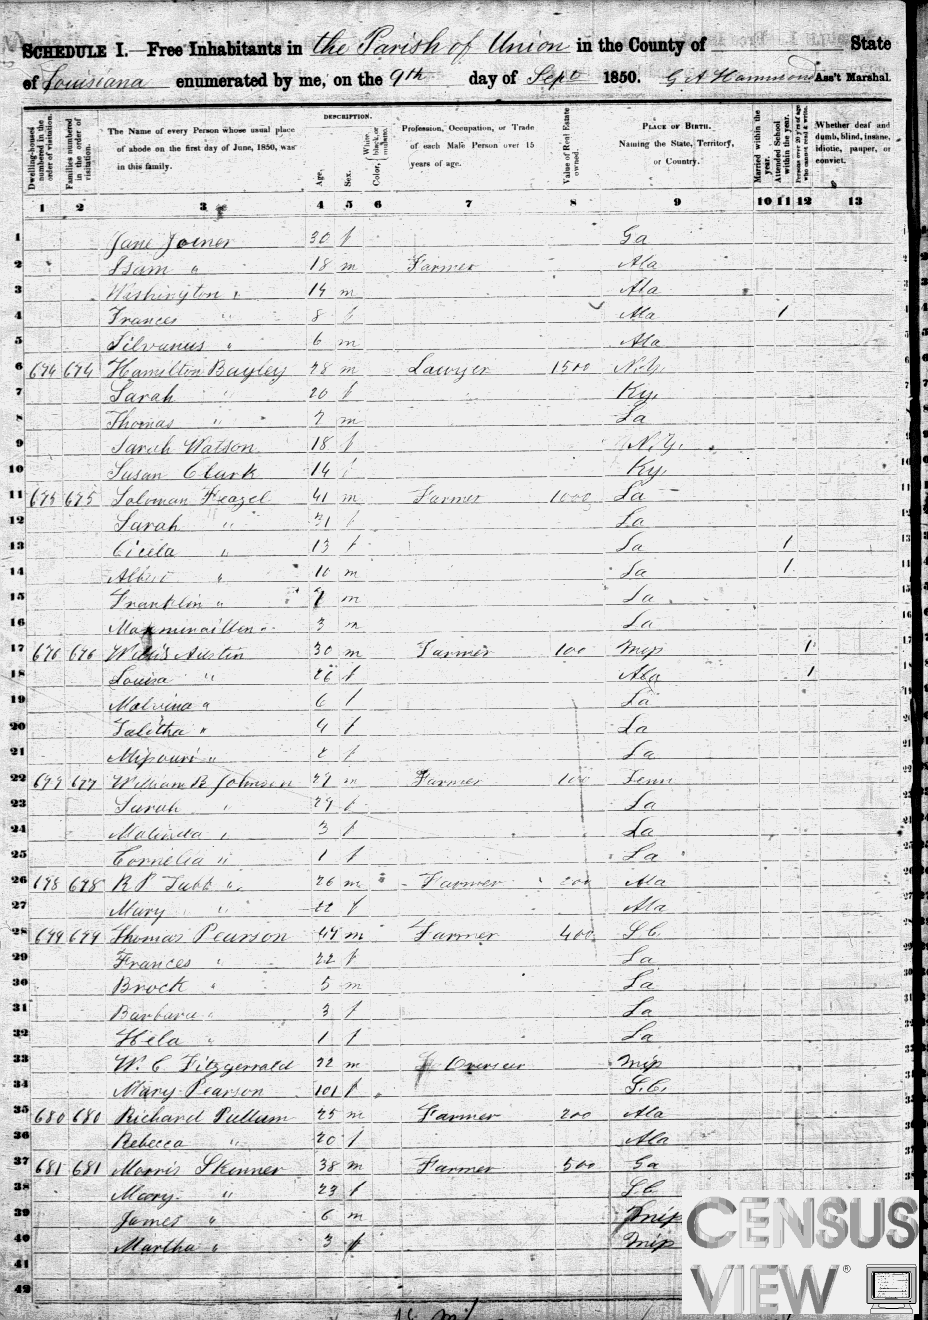 SCHEDULE I.—Free Inhabitants in the Parish of Union in the County of State
of Louisiana enumerated by me, on the 9th day of Sept 1850. G A Hammond Ass't Marshal.
Dwelling-houses numbered in the order of visitation.
Families numbered in the order of visitation.
The Name of every Person whose usual place of abode on the first day of June, 1850, was in this family.
DESCRIPTION.
Age.
Sex.
Color, White, black, or mulatto.
Profession, Occupation, or Trade of each Male Person over 15 years of age.
Value of Real Estate owned.
PLACE OF BIRTH. Naming the State, Territory, or Country.
Married within the year.
Attended School within the year.
Persons over 20 y'rs of age who cannot read & write.
Whether deaf and dumb, blind, insane, idiotic, pauper, or convict.
1 2 3 4 5 6 7 8 9 10 11 12 13
1 Jane Joiner 30 f Ga
2 Isam " 18 m Farmer Ala
3 Washington " 14 m Ala
4 Frances " 8 f Ala 1
5 Silvanus " 6 m Ala
6 674 674 Hamilton Bayley 28 m Lawyer 1500 N.Y.
7 Sarah " 20 f Ky.
8 Thomas " m La
9 Sarah Watson 18 f N.Y.
10 Susan Clark 14 f Ky.
11 675 675 Soloman Feazel 41 m Farmer 1000 La
12 Sarah " 31 f La
13 Cicela " 13 f La 1
14 Albert " 10 m La 1
15 Franklin " 7 m La
16 " 3 m La
17 676 676 Willis Austin 30 m Farmer 100 Mip 1
18 Louisa " 26 f Ala 1
19 Malvina " 6 f La
20 Talitha " 4 f La
21 Mipouri " 2 f La
22 677 677 William B Johnson 27 m Farmer 100 Tenn
23 Sarah " 27 f La
24 Malinda " 3 f La
25 Cornelia " 1 f La
26 678 678 R P Tubb " 26 m Farmer 200 Ala
27 Mary " 22 f Ala
28 679 679 Thomas Pearson 47 m Farmer 400 S.C.
29 Frances " 22 f La
30 Brock " 5 m La
31 Barbara " 3 f La
32 Hela " 1 f La
33 W. C Fitzgerrald 22 m Overseer Mip
34 Mary Pearson 101 f S.C.
35 680 680 Richard Pullum 25 m Farmer 200 Ala
36 Rebecca " 20 f Ala
37 681 681 Morris Skinner 38 m Farmer 500 Ga
38 Mary " 23 f S.C.
39 James " 6 m Mip
40 Martha " 3 f Mip
41
42
CENSUS
VIEW ®